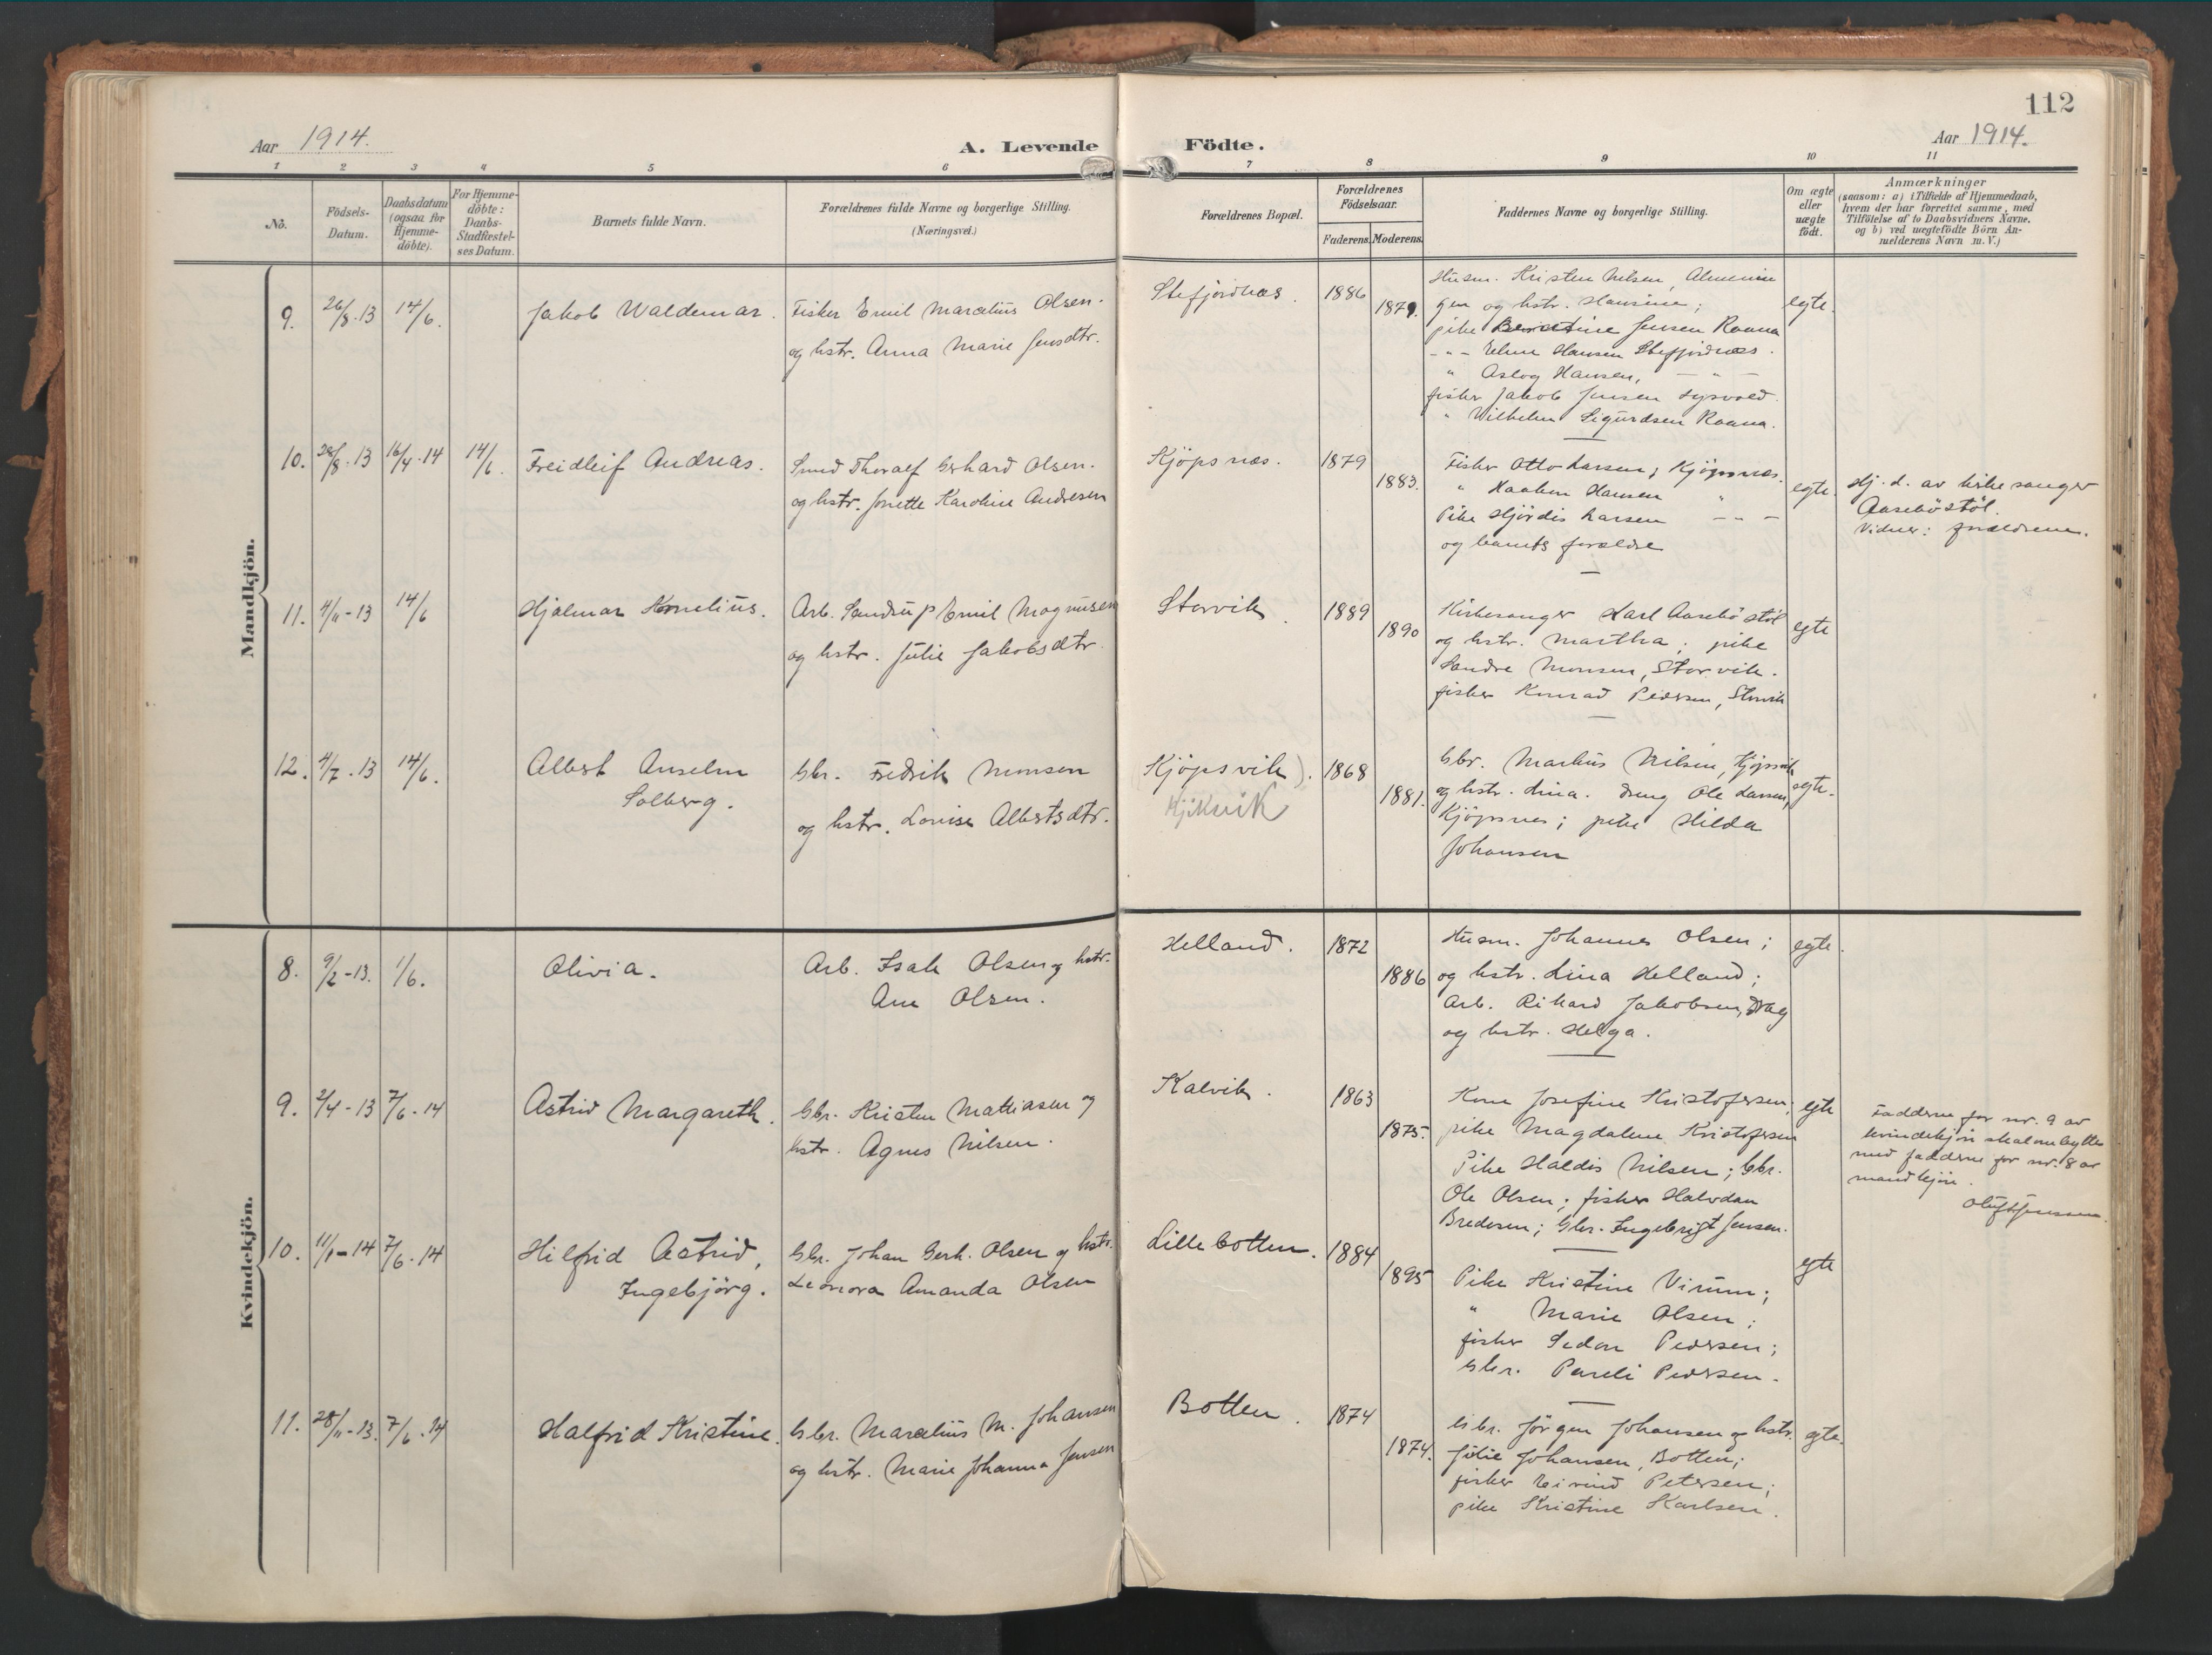 112
Aar 1914.
A. Levende Födte.
Aar 1914.
1 2 3 4 5 6 7 8 9 10 11
No.
Födsels-
Datum.
Daabsdatum
(ogsaa for
Hjemme-
döbte).
For Hjemme-
döbte:
Daabs-
Stadfæstel-
ses Datum.
Barnets fulde Navn.
Forældrenes fulde Navne og borgerlige Stilling.
(Næringsvei.)
Forældrenes Bopæl.
Forældrenes
Födselsaar.
Faderens. Moderens.
Faddernes Navne og borgerlige Stilling.
Om ægte
eller
uægte
födt.
Anmærkninger
(saasom: a) i Tilfælde af Hjemmedaab,
hvem der har forrettet samme, med
Tilföielse af to Daabsvidners Navne.
og b) ved uægtefödte Börn An-
melderens Navn m. V.)
Mandkjön.
9. 26/8-13 14/6. Jakob Waldemar. Fisker Emil Marcelius Olsen.
og hstr. Anna Marie Jensdtr.
Stefjordnæs. 1886 1879.
Husm. Kristen Nilsen,
gen og hstr. Hansine;
pike Jensen Raana
-"- Hansen Stefjordnæs.
" Aslog Hansen, - " -
fisker Jakob Jensen
" Wilhelm Sigurdsen Raana.
egte.
10. 28/8-13 16/4-14 14/6. Freidleif Andreas. Smed Thoralf Gerhard Olsen.
og hstr. Jonette Karoline Andresen
Kjöpsnæs. 1879 1883.
Fisker Otto Larsen; Kjöpsnæs.
" Haakon Hansen "
Pike Hjördis Larsen - " -
og barnets forældre
egte.
Hj. d. av kirkesanger
Aasebøstöl.
Vidner: forældrene.
11. 4/11-13 14/6 Hjalmar Kornelius. Arb. Sandrup Emil Magnusen
og hstr. Julie Jakobsdtr.
Storvik. 1889 1890
Kirkesanger Karl Aasebøstöl
og hstr. Martha; pike
Sandra Monsen, Storvik.
fisker Konrad Pedersen, Storvik
egte
12. 4/7-13 14/6. Albert Anselm
Solberg.
Gbr. Fredrik Monsen
og hstr. Lovise Albertsdtr.
Kjöpsvik).
Hjikvik
1868 1881.
Gbr. Markus Nilsen, Kjöpsvik
og hstr. Lina. Dreng Ole Larsen,
Kjöpsnes; pike Hilda
Johansen
egte.
Kvindekjön.
8. 9/2-13. 1/6. Olivia. Arb. Isak Olsen og hstr.
Ane Olsen.
Helland. 1872 1886
Husm. Johannes Olsen;
og hstr. Lina Helland;
Arb. Rikard Jakobsen, Drag
og hstr. Helga.
egte.
9. 2/4-13 7/6-14 Astrid Margareth. Gbr. Kristen Mattiasen og
hstr. Agnes Nilsen.
Kalvik. 1863 1875.
Kone Josefine Kristofersen;
pike Magdalene Kristofersen
Pike Haldis Nilsen; Gbr.
Ole Olsen; fisker Halvdan
Bredesen; Gbr. Ingebrigt Jensen.
egte
Fadderne for nr. 9 av
kvindekjön skal ombyttes
med fadderne for nr. 8 av
mandkjön.
10. 11/1-14 7/6-14 Hilfrid Astrid,
Ingebjörg.
Gbr. Johan Gerh. Olsen og hstr.
Leonora Amanda Olsen
Lillebotten. 1884 1895
Pike Kristine Virum;
" Marie Olsen;
fisker Sedon Pedersen;
Gbr. Pareli Pedersen.
egte
11. 28/11-13. 7/6-14 Halfrid Kristine. Gbr. Marcelius M. Johansen
og hstr. Marie Johanna Jensen
Botten. 1874 1874.
Gbr. Jörgen Johansen og hstr.
Julie Johansen, Botten;
fisker Eivind Petersen;
pike Kristine Karlsen.
egte.